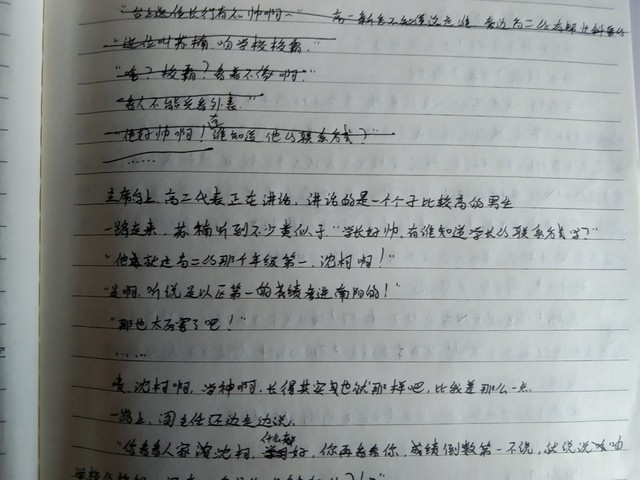 "台上这位长得有点帅啊~" 高一新生不知道这是谁，旁边高二的有帮忙科普的
"这位叫苏楠，咱学校校霸。"
"啥？校霸？看着不像啊。"
"看人不能光看外表。"
"他好帅啊！有谁知道他的联系方式？"
……
主席台上，高二代表正在讲话，讲话的是一个个子比较高的男生
一路走来，苏楠听到不少类似于"学长好帅，有谁知道学长的联系方式吗？"
"他就是高二的那个年级第一，沈柯啊！"
"是啊，听说是以区第一的成绩考进南阳的！"
"那也太厉害了吧！"
……
噢，沈柯啊，学神啊，长得其实也就那样吧，比我差那么一点
一路上，周主任还边走边说，
"你看看人家沈柯，什么都好，你再看看你，成绩倒数第一不说，就说说咱